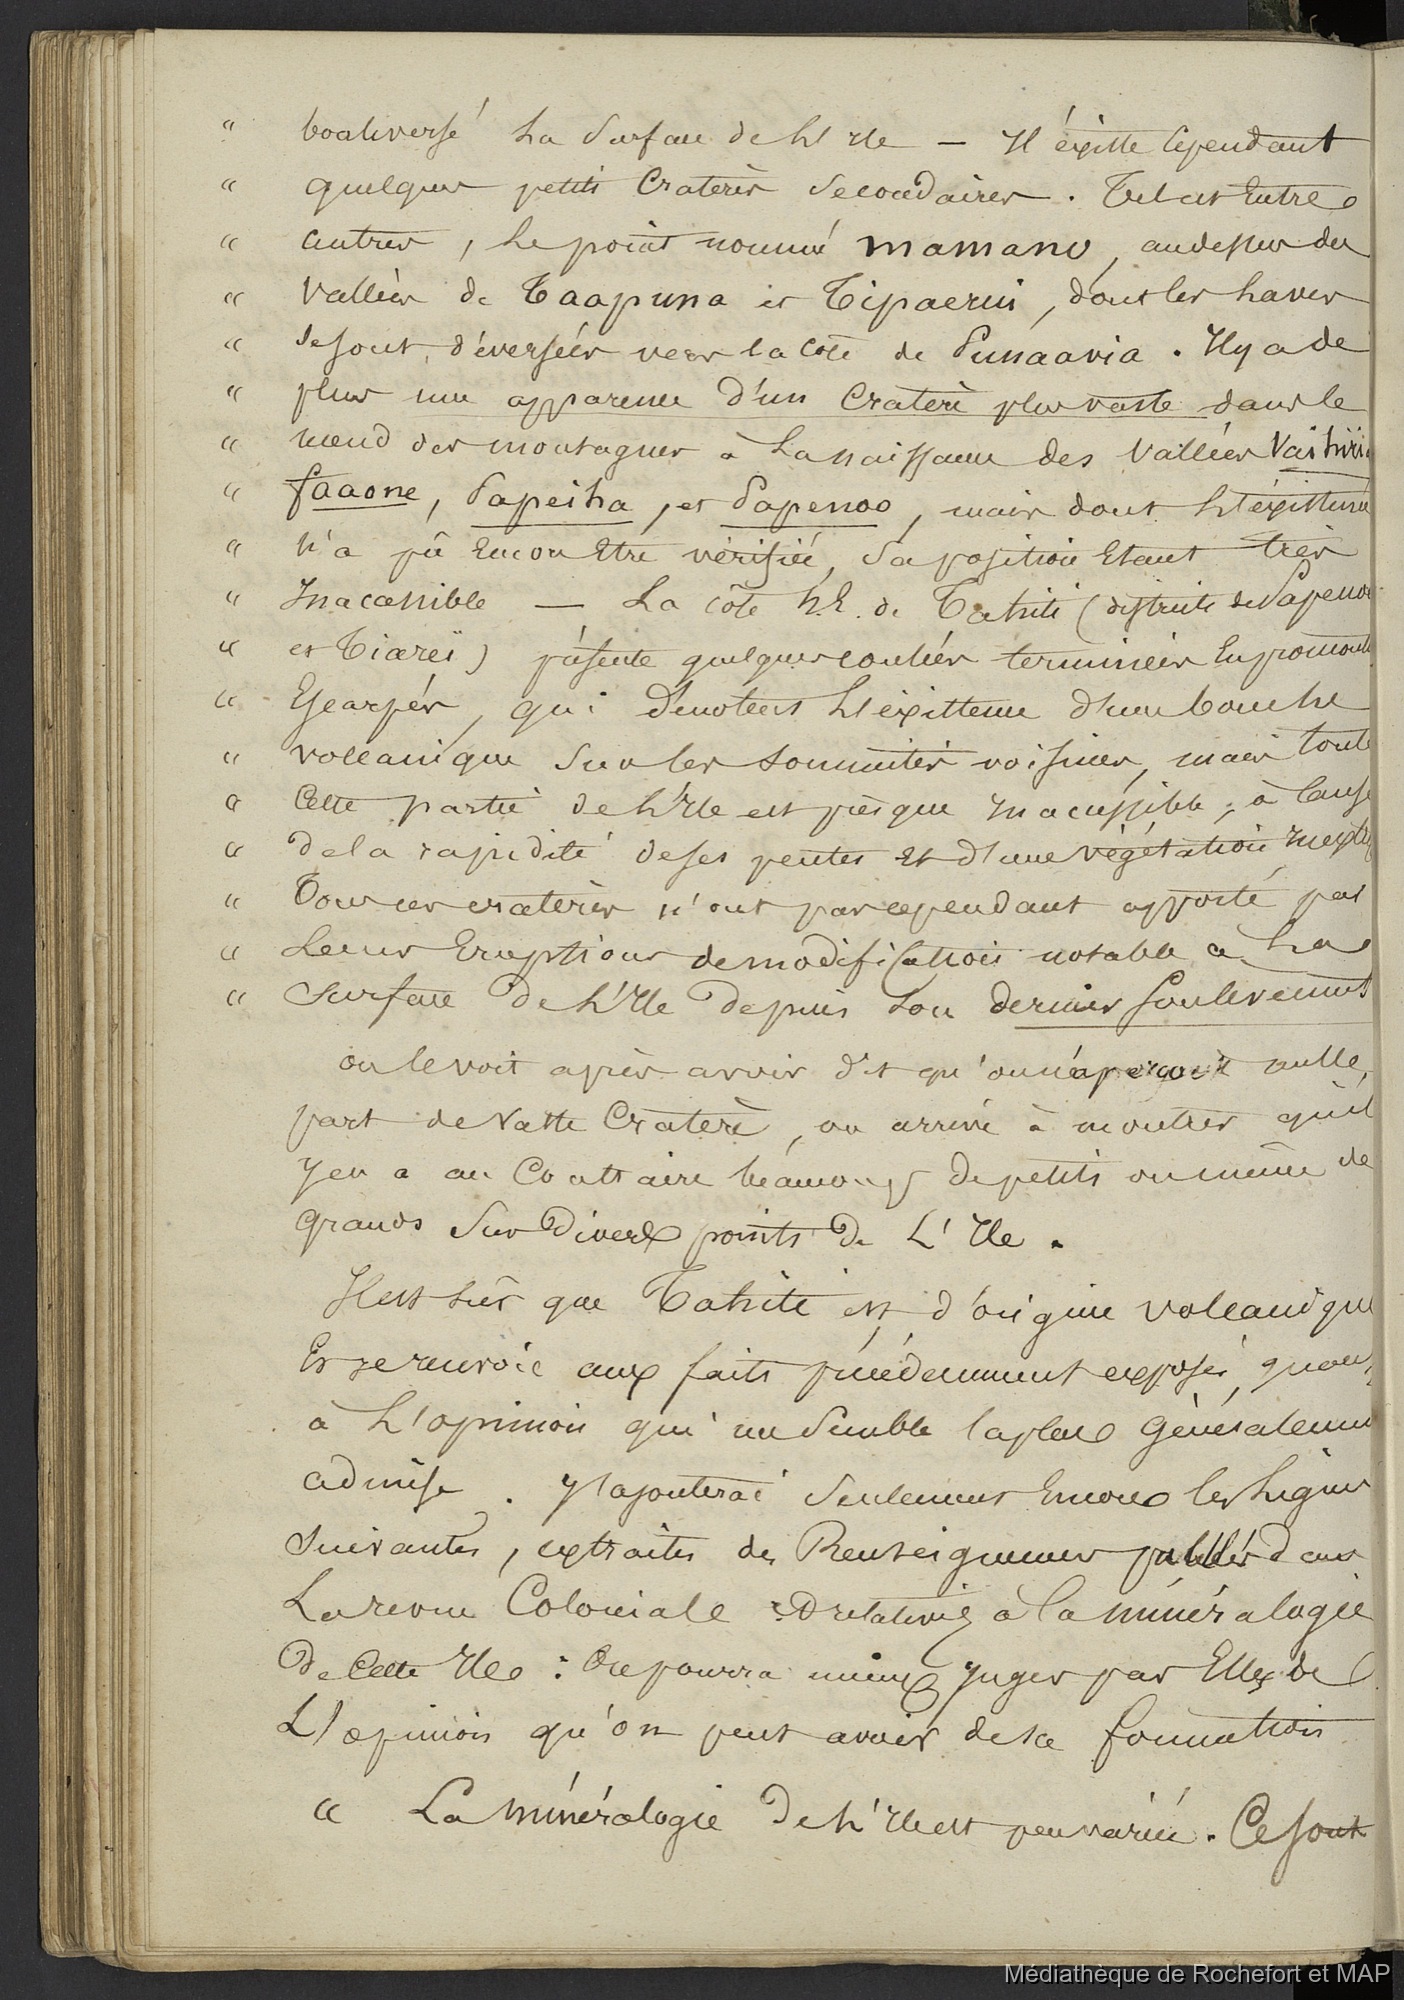 " bouliversé La Surface de L'Ile — Il éxiste Cependant
" quelques petits Cratères Secondaires. Tel est Entre
" autres, Le point nommé mamano, audessus des
" Vallées de Taapuna et Tipaerui, dont les Laves
" se sont déversées vers la Côte de Punaavia. Il y a de
" plus une apparence d'un Cratère plus vaste dans le
" noeud des montagnes à La naissance des Vallées Vaihiria
" faaone, Papeiha, et Papenoo, mais dont L'éxistence
" n'a pû Encore Etre vérifiée, Sa position Etant très
" Inacessible — La côte N.E. de Tahiti (districts de Papenoo
" et Tiareï) présente quelques coulées terminées En promont
" Escarpés, qui dénotent L'éxistence d'une bouche
" volcanique Sur les Sommités voisines, mais toute
" Cette partie de L'Ile est présque Inacessible, à Cause
" de la rapidité de ses pentes Et d'une végétation Inext
" Tous ces cratères n'ont pas cependant apporté par
" Leurs Eruptions de modification notable a La
" Surface de L'Ile depuis Son dernier Soulèvement
on le voit après avoir dit qu'on n'aperçoit nulle
part de Vaste Cratère, on arrive à montrer qu'il
y en a au Contraire beaucoup de petits ou même de
grands Sur Divers points de L'Ile.
Il est Sûr que Tahiti est d'origine volcanique
Et je renvoie aux faits précédemment exposés, quant
à L'opinion qui me Semble la plus Généralement
admise. J'ajouterai Seulement Encore les Lignes
Suivantes, extraites des Renseignemens publiés dans
La revue Coloniale relatives à la minéralogie
de Cette Ile : On pourra mieux Juger par Elles de
L'opinion qu'on peut avoir de sa formation
" La minéralogie de L'Ile est peu variée. Ce sont
Médiathèque de Rochefort et MAP